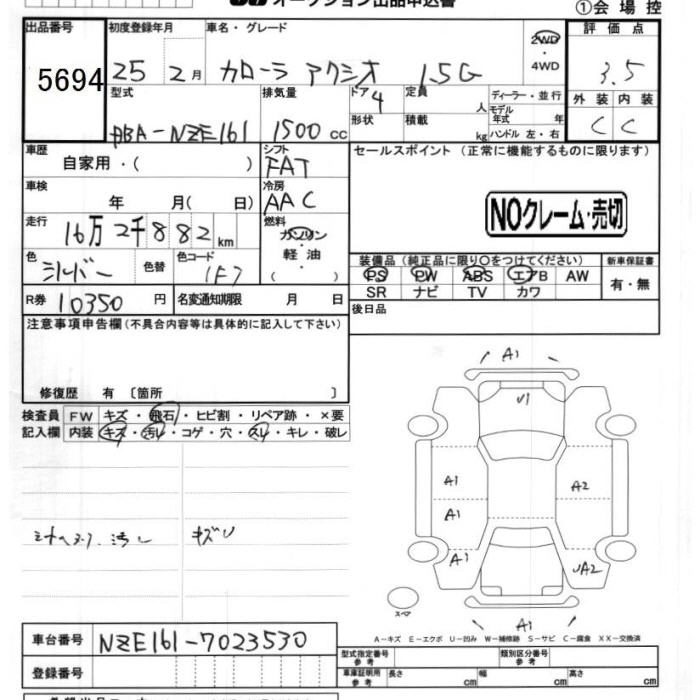 オークション出品申込書
①会場控
出品番号
5694
初度登録年月
25 2月
車名・グレード
カローラ アクシオ 1.5G
2WD・4WD
評価点
3.5
型式
DBA-NZE161
排気量
1500 cc
ドア
4
形状
定員
人
積載
kg
ディーラー・並行
モデル年式 年
ハンドル 左・右
外装 内装
C C
車歴
自家用・( )
シフト
FAT
セールスポイント (正常に機能するものに限ります)
車検
年 月( 日)
冷房
AAC
NOクレーム・売切
走行
16万2千882km
燃料
ガソリン・軽油
( )
色
シルバー
色替
色コード
1F7
装備品(純正品に限り〇をつけてください)
新車保証書
PS PW ABS エアB AW
SR ナビ TV カワ
有・無
R券 10350円
名変通知期限 月 日
後日品
注意事項申告欄(不具合内容等は具体的に記入して下さい)
修復歴 有〔箇所 〕
検査員記入欄
FW キズ・飛石・ヒビ割・リペア跡・×要
内装 キズ・汚レ・コゲ・穴・スレ・キレ・破レ
A1
U1
A1
A2
A1
A1
UA2
A1
スペア
汚レ キズU
A−キズ E−エクボ U−凹み W−補修跡 S−サビ C−腐食 XX−交換済
車台番号 NZE161-7023530
登録番号
型式指定番号 参考
類別区分番号 参考
車庫証明用 参考 長さ cm 幅 cm 高さ cm